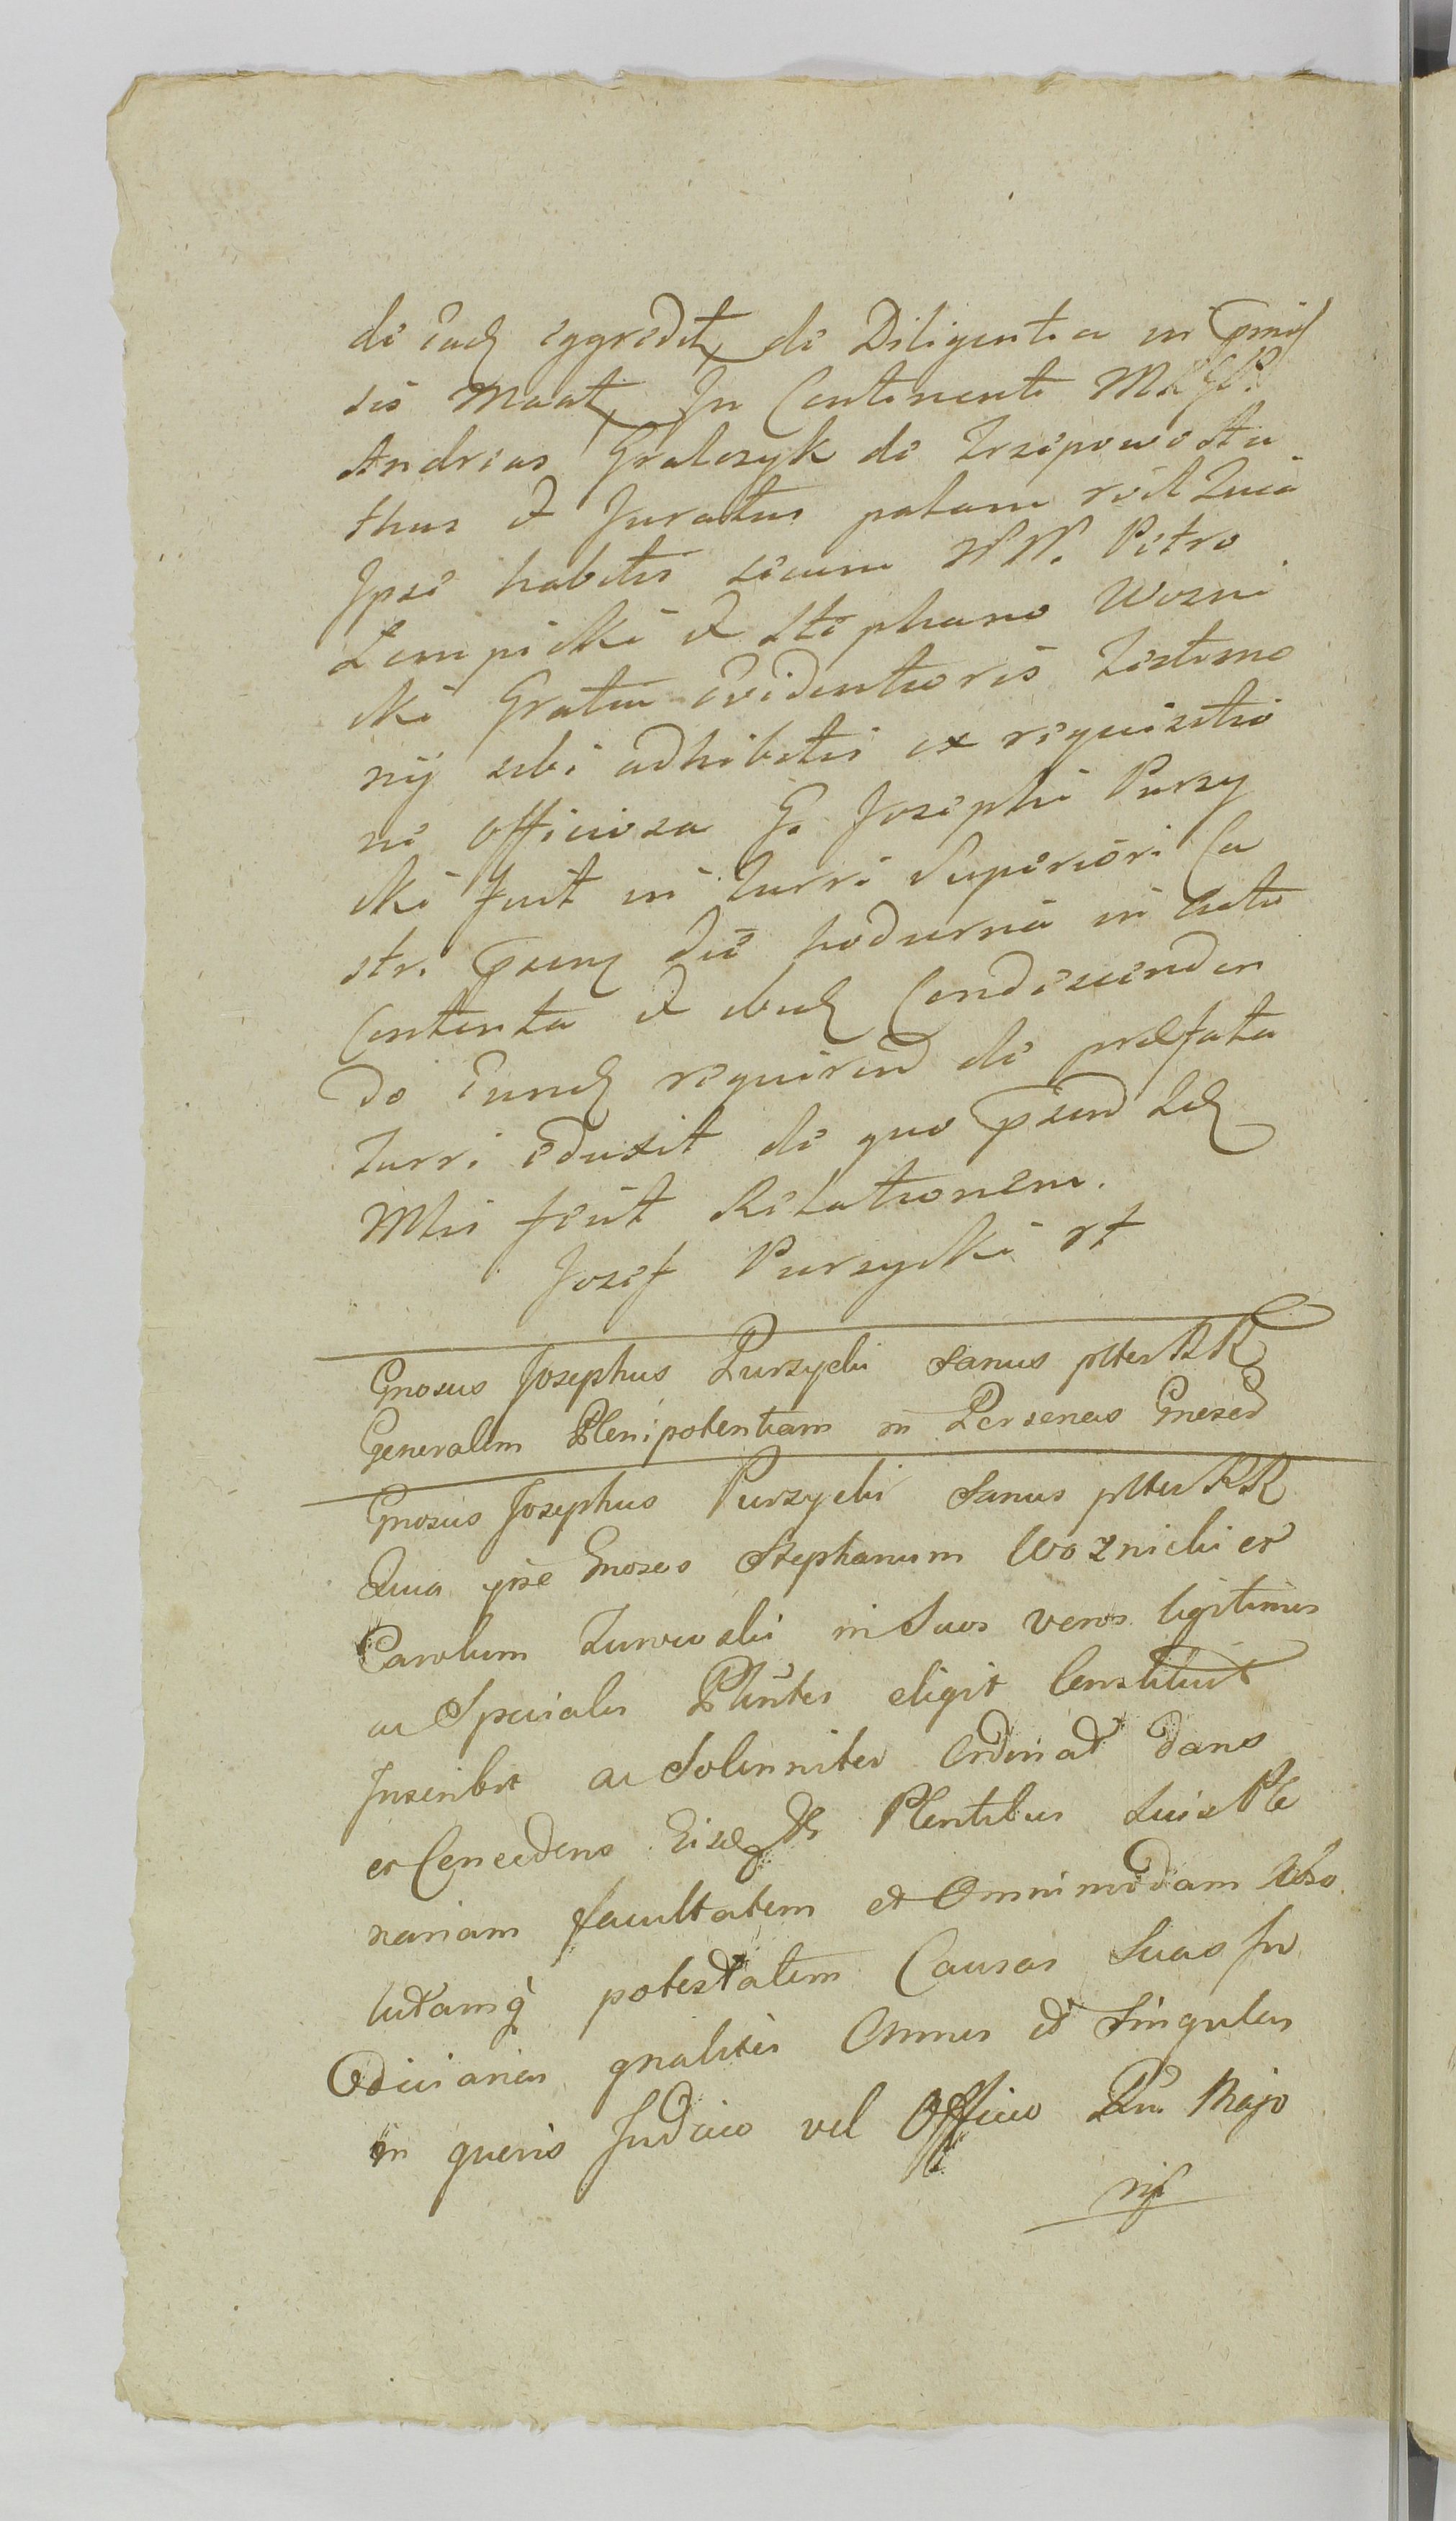 de eadq eggredit, de Diligentia in pmis
sis Maat, In Continenti MRGR.
Andreas Gralczyk de Trzepowo Au
thus et Juratus palam rŏil Quia
Ipse habitis secum NN. Petro
Lempicki et Stephano Wozni
cki Gratia Evidentioris Testimo
nij sibi adhibitis ex requisitio
ne officiosa G. Josephi Purzy
cki fuit in Turri Superiori Ca
stri psenq die hodierna in Actu
Contenta et ibidq Condescenden
do Eundq requirend de præfata
Turri eduxit de quo psend sdq
Mhi fecit Relationem.
Jozef Purzycki rt
Gnosus Josephus Purzycki Sanus ptter RR
Generalem Plenipotentiam in Personas Gnesed
Gnosus Josephus Purzycki Sanus ptter RR
Quia ipse Gnosos Stephanum Woznicki et
Carolum Zurowski in Suos veros legitimos
ac Speciales Plintes eligit Constituit
Inscribit ac Solenniter Ordinat dans
et Concedens Eisdq Plentibus suis Ple
nariam facultatem et Omnimodam Abso
lutamq potestatem Causas Suas Ju
diciarias gnaliter Omnes et Singulas
in quovis Judicio vel Officio Majo
ris